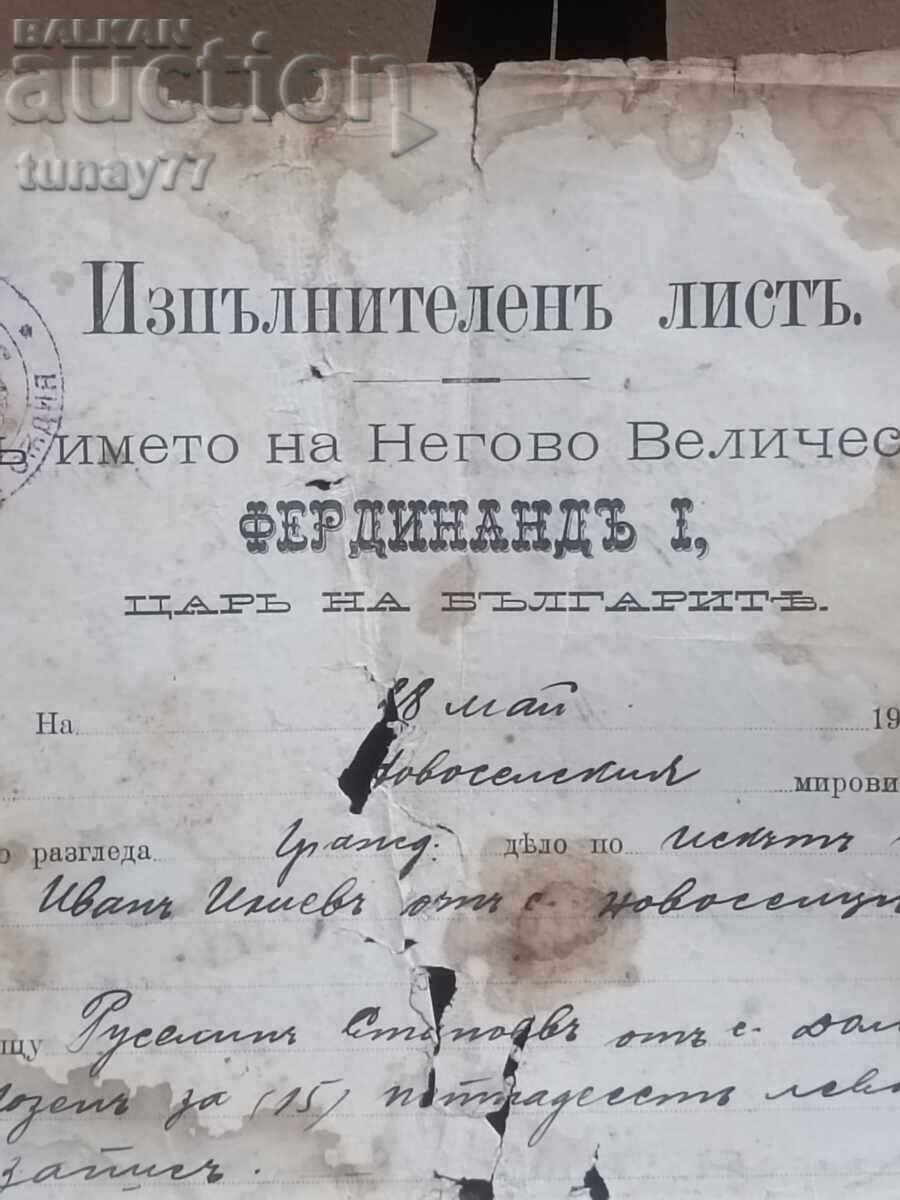 BALKAN
auction
tunay77
Изпълнителенъ листъ.
ъ името на Негово Величес
ФЕРДИНАНДЪ I,
ЦАРЬ НА БЪЛГАРИТѢ.
На 28 май 19
Новоселския мирови
о разгледа Гражд. дѣло по искътъ
Иванъ Илиевъ отъ с. Новоселци
щу Руселинъ отъ с. Дол
Лозенъ за (15) петнадесетъ лева
записъ.